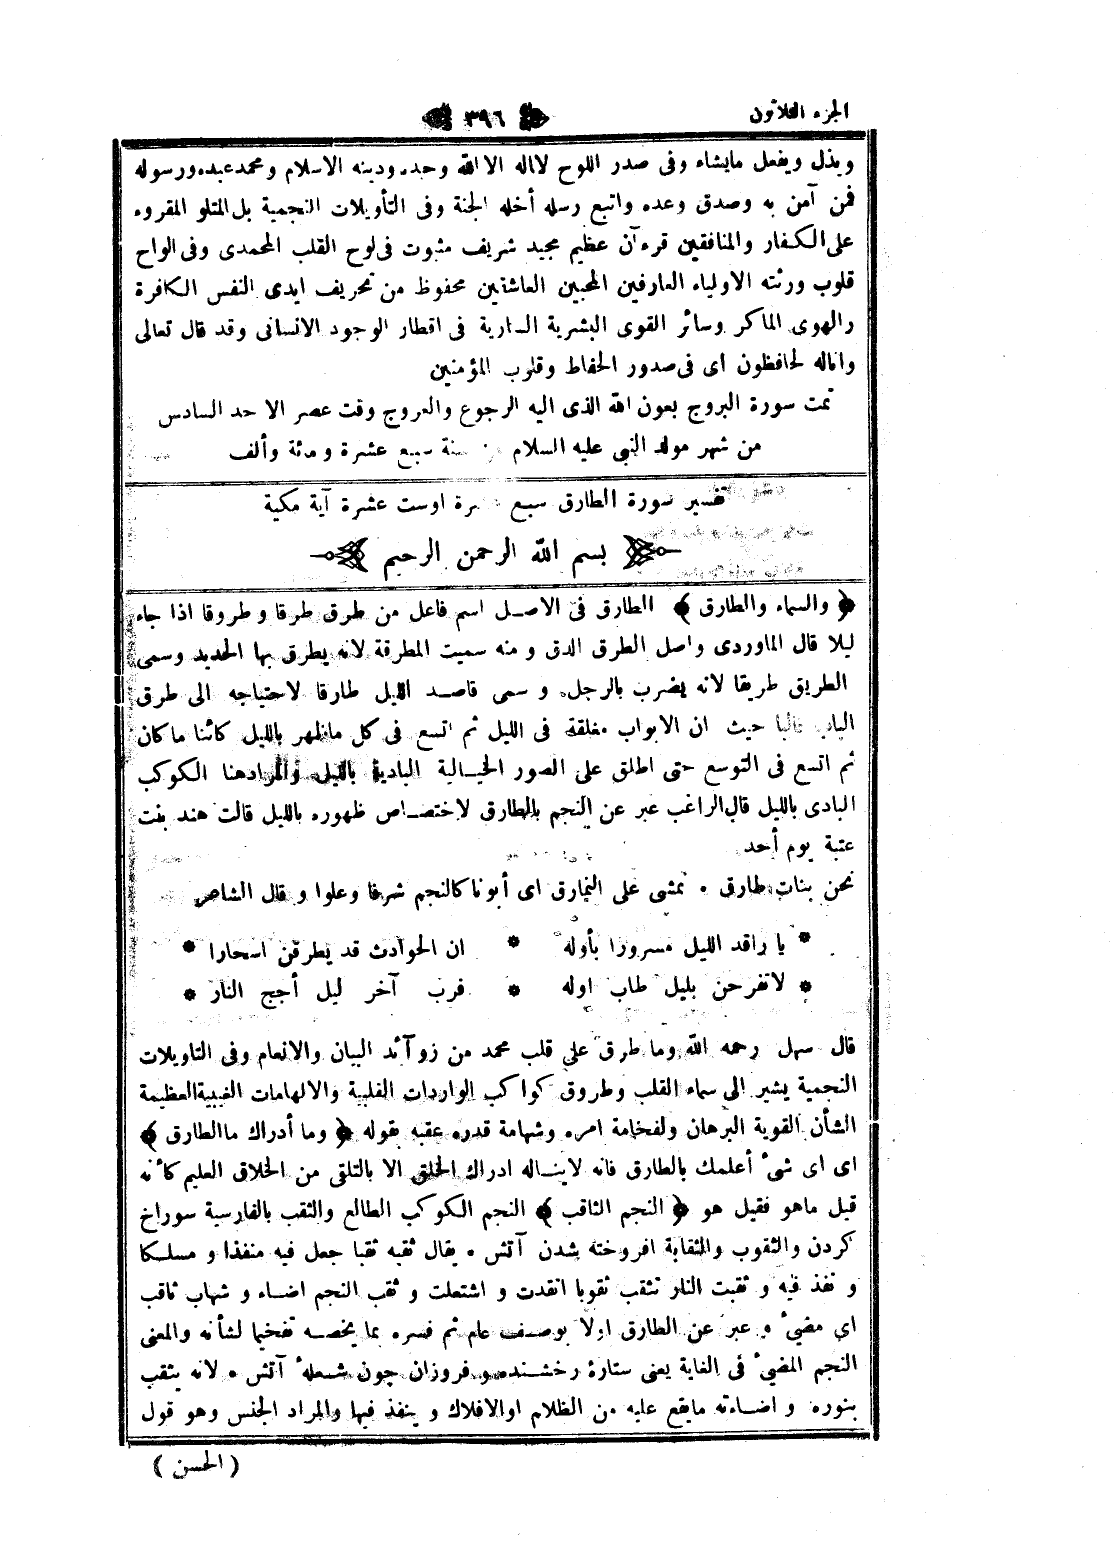 الجزء الثلاثون
٣٩٦
ويذل ويفعل مايشاء وفى صدر اللوح لااله الا الله وحده ودينه الاسلام ومحمد عبده ورسوله
فمن آمن به وصدق وعده واتبع رسله أخله الجنة وفى التأويلات النجمية بل المتلو المقروء
على الكفار والمنافقين قرءآن عظيم مجيد شريف مثبوت فى لوح القلب المحمدى وفى الواح
قلوب ورثته الاولياء العارفين المحبين العاشقين محفوظ من تحريف ايدى النفس الكافرة
والهوى الماكر وسائر القوى البشرية السارية فى اقطار الوجود الانسانى وقد قال تعالى
وانا له لحافظون اى فى صدور الحفاظ وقلوب المؤمنين
تمت سورة البروج بعون الله الذى اليه الرجوع والعروج وقت عصر الاحد السادس
من شهر مولد النبى عليه السلام من سنة سبع عشرة ومائة وألف
تفسير سورة الطارق سبع عشرة اوست عشرة آية مكية
بسم الله الرحمن الرحيم
﴿ والسماء والطارق ﴾ الطارق فى الاصل اسم فاعل من طرق طرقا و طروقا اذا جاء
ليلا قال الماوردى واصل الطرق الدق و منه سميت المطرقة لانه يطرق بها الحديد وسمى
الطريق طريقا لانه يضرب بالرجل و سمى قاصد الليل طارقا لاحتياجه الى طرق
الباب غالبا حيث ان الابواب مغلقة فى الليل ثم اتسع فى كل ماظهر بالليل كائنا ماكان
ثم اتسع فى التوسع حتى اطلق على الصور الخيالية البادية بالليل والمراد هنا الكوكب
البادى بالليل قال الراغب عبر عن النجم بالطارق لاختصاص ظهوره بالليل قالت هند بنت
عتبة يوم أحد
نحن بنات طارق • نمشى على النمارق اى أبونا كالنجم شرفا وعلوا و قال الشاعر
* يا راقد الليل مسرورا بأوله * ان الحوادث قد يطرقن اسحارا *
* لاتفرحن بليل طاب اوله * فرب آخر ليل أجج النار *
قال سهل رحمه الله وما طرق على قلب محمد من زوآئد البيان والانعام وفى التاويلات
النجمية يشير الى سماء القلب وطروق كواكب الواردات القلبية والالهامات الغيبية العظيمة
الشأن القوية البرهان ولفخامة امره وشهامة قدره عقبه بقوله ﴿ وما أدراك ماالطارق ﴾
اى اى شئ أعلمك بالطارق فانه لايناله ادراك الخلق الا بالتلقى من الخلاق العليم كأنه
قيل ماهو فقيل هو ﴿ النجم الثاقب ﴾ النجم الكوكب الطالع والثقب بالفارسية سوراخ
كردن والثقوب والثقابة افروخته شدن آتش • يقال ثقبه ثقبا جعل فيه منفذا و مسلكا
و نفذ فيه و ثقبت النار تثقب ثقوبا اتقدت و اشتعلت و ثقب النجم اضاء و شهاب ثاقب
اي مضئ و عبر عن الطارق اولا بوصف عام ثم فسره بما يخصه تفخيما لشأنه والمعنى
النجم المضئ فى الغاية يعنى ستارۀ رخشنده و فروزان چون شعلۀ آتش • لانه يثقب
بنوره و اضاءته مايقع عليه من الظلام اوالافلاك و ينفذ فيها والمراد الجنس وهو قول
( الحسن )